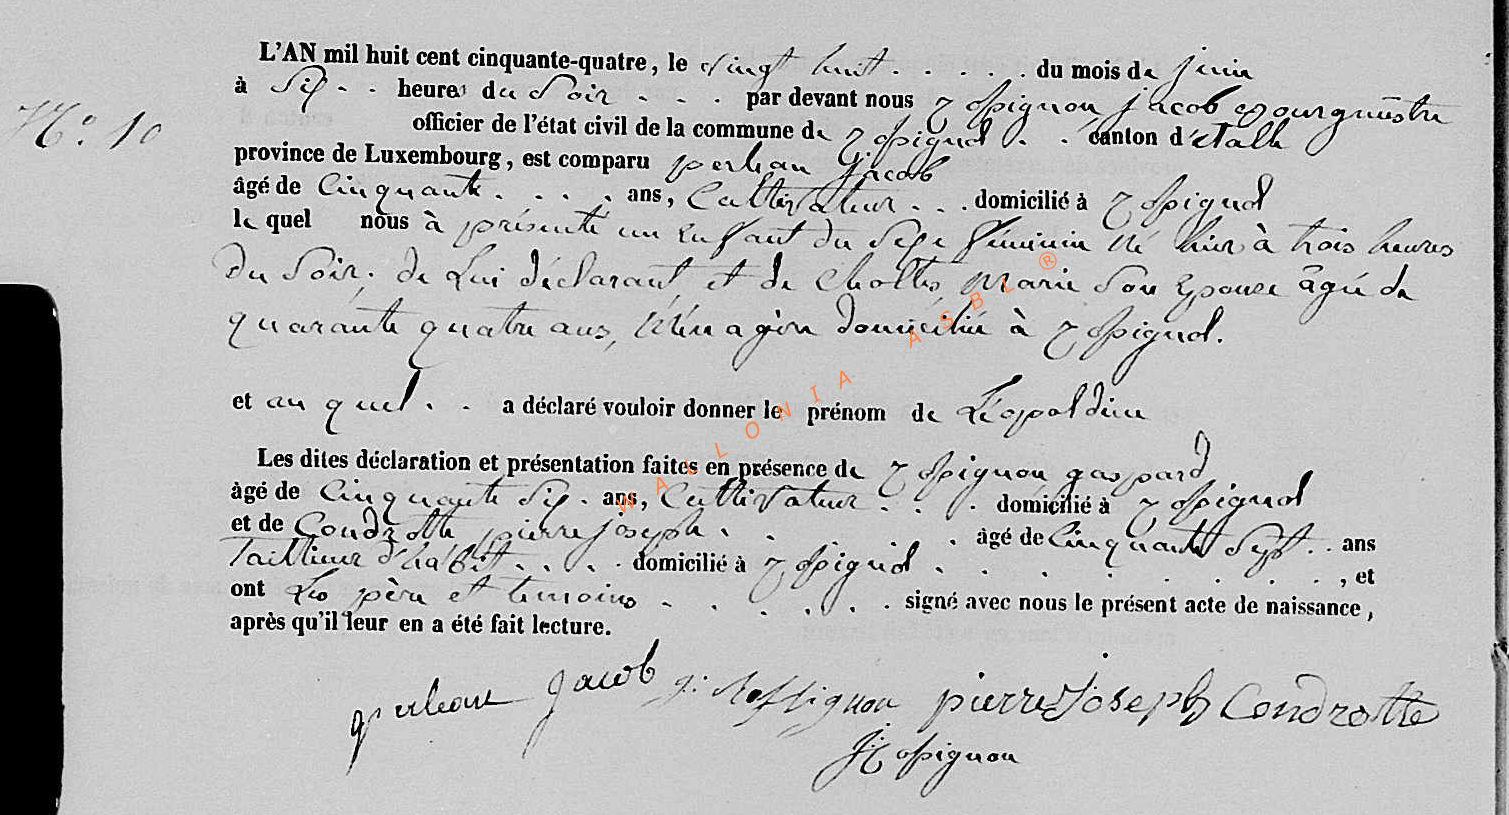 L'AN mil huit cent cinquante-quatre, le vingt huit . . . . . du mois de juin
N.° 10
à Six . . heures du Soir . . . par devant nous Rossignon jacob Bourgmestre
officier de l'état civil de la commune de Rossignol . . canton d'étalle
province de Luxembourg, est comparu perleau jacob
âgé de Cinquante . . . . ans, Cultivateur . . . domicilié à Rossignol
le quel nous à présenté un Enfant du Sexe féminin né hier à trois heures
du Soir, de Lui déclarant et de Marie Son Epouse âgée de
quarante quatre ans, Ménagère domiciliée à Rossignol.
et au quel . . a déclaré vouloir donner le prénom de Léopoldine
Les dites déclaration et présentation faites en présence de Rossignon gaspard
âgé de Cinquante Six . ans, Cultivateur . . . domicilié à Rossignol
et de Condrotte pierre joseph . . . . . âgé de Cinquante Sept . . ans
Tailleur d'habit . . . . domicilié à Rossignol . . . . . . . . . , et
ont Les père et temoins . . . . . . signé avec nous le présent acte de naissance,
après qu'il leur en a été fait lecture.
perleau jacob g: Rossignon pierre Joseph Condrotte
J: Rossignon
WALLONIA ASBL ®